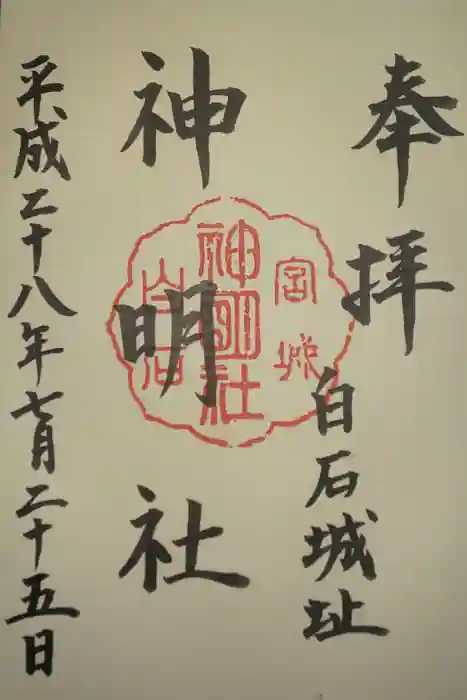 奉拝
白石城址
神明社
宮城
神明社
白石
平成二十八年七月二十五日